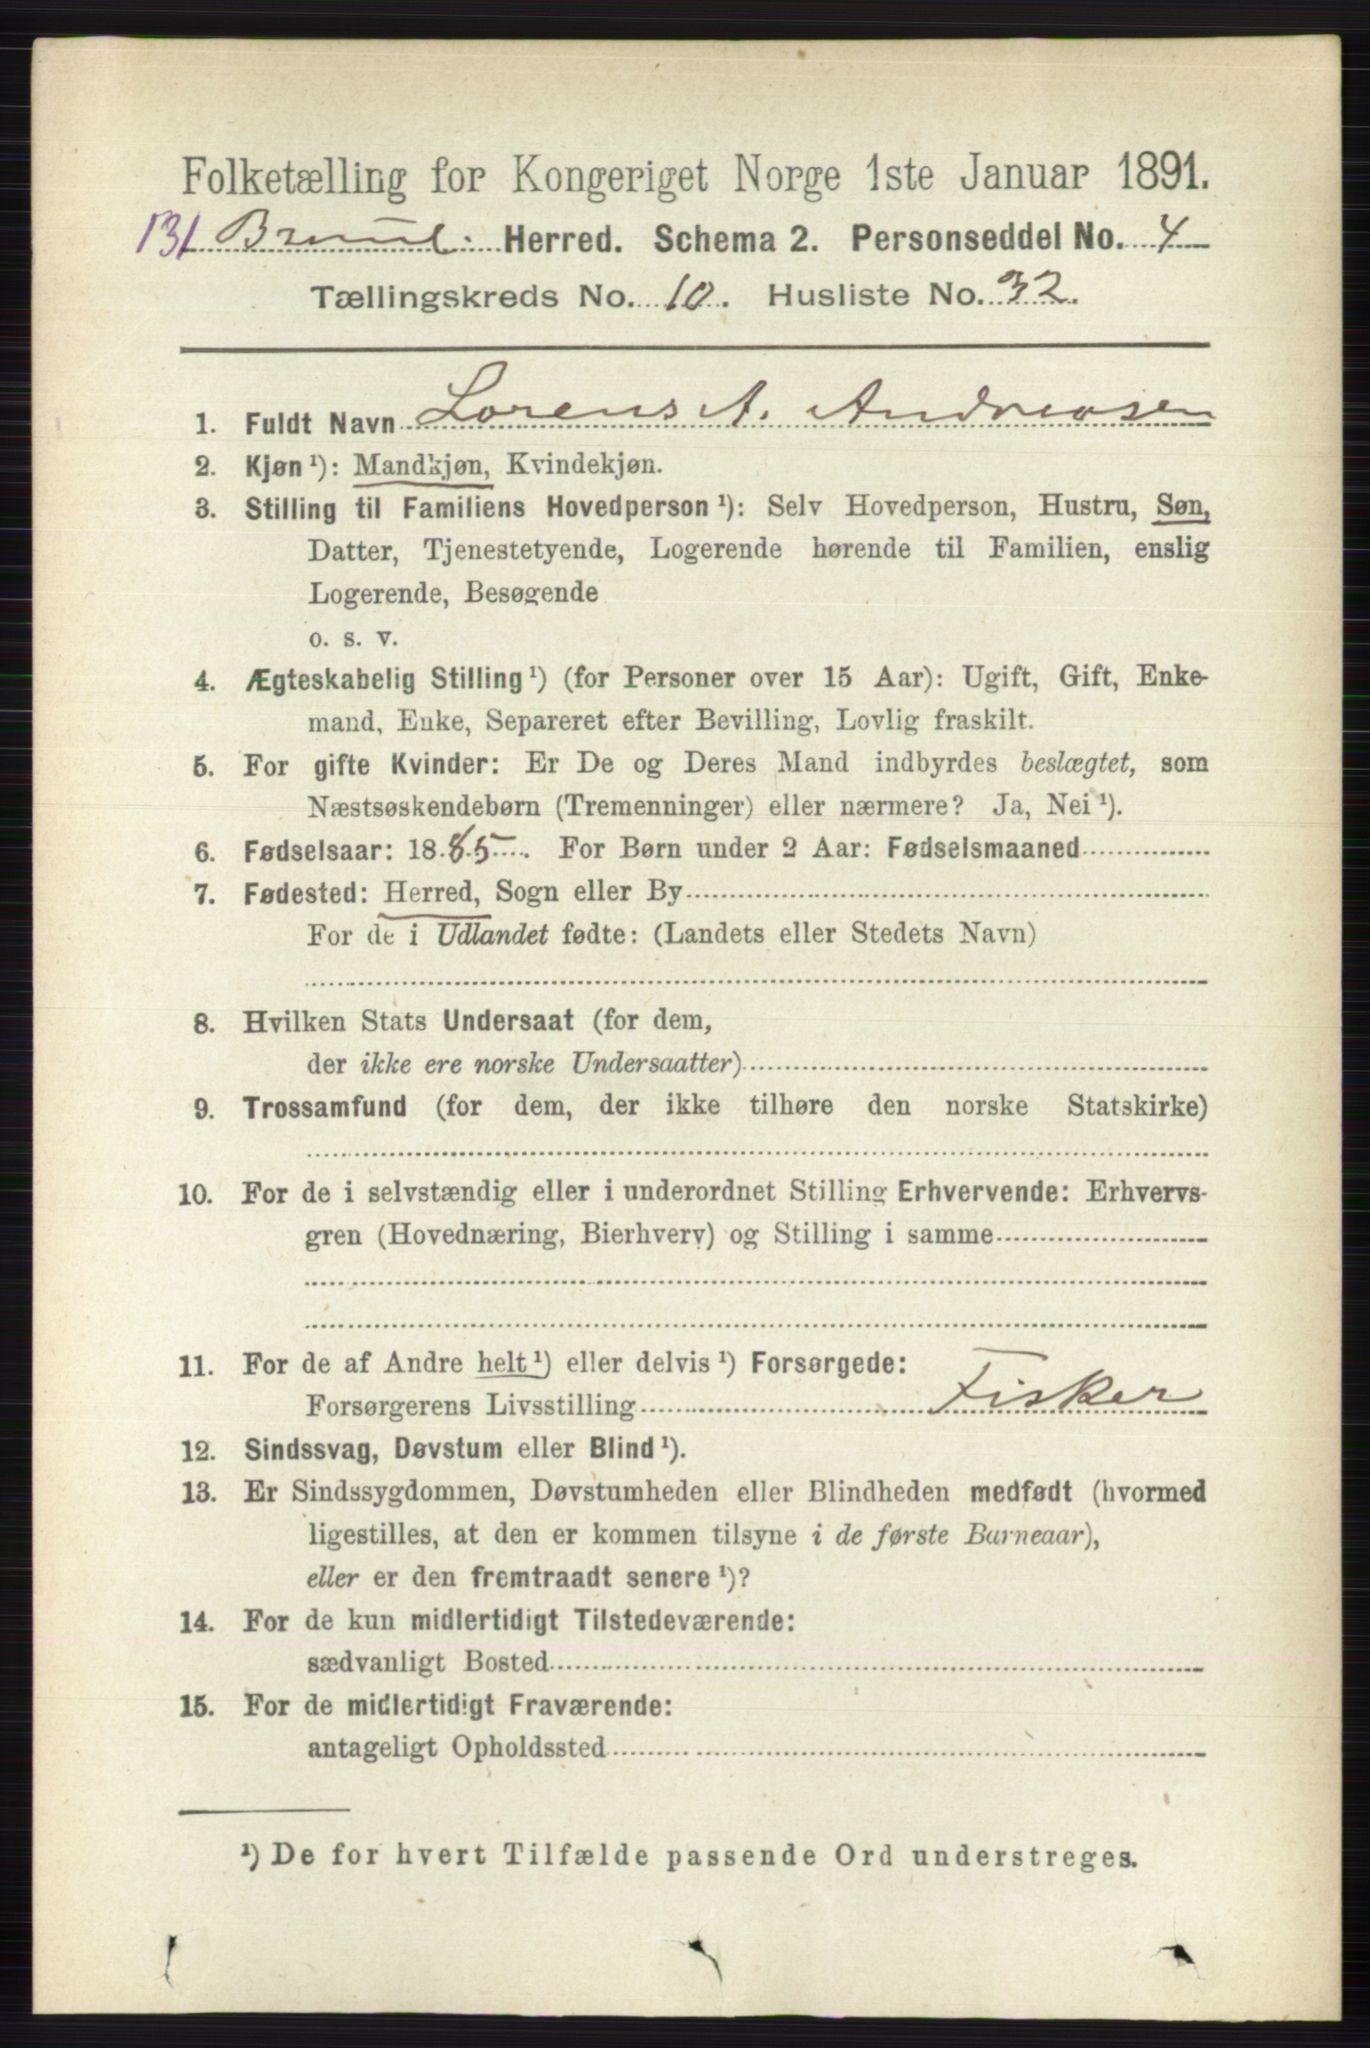 Folketælling for Kongeriget Norge 1ste Januar 1891.
131 Herred. Schema 2. Personseddel No. 4
Tællingskreds No. 10. Husliste No. 32.
1. Fuldt Navn Lorens A. Andreasen
2. Kjøn ¹): Mandkjøn, Kvindekjøn.
3. Stilling til Familiens Hovedperson ¹): Selv Hovedperson, Hustru, Søn,
Datter, Tjenestetyende, Logerende hørende til Familien, enslig
Logerende, Besøgende
o. s. v.
4. Ægteskabelig Stilling ¹) (for Personer over 15 Aar): Ugift, Gift, Enke-
mand, Enke, Separeret efter Bevilling, Lovlig fraskilt.
5. For gifte Kvinder: Er De og Deres Mand indbyrdes beslægtet, som
Næstsøskendebørn (Tremenninger) eller nærmere? Ja, Nei ¹).
6. Fødselsaar: 1885. For Børn under 2 Aar: Fødselsmaaned
7. Fødested: Herred, Sogn eller By
For de i Udlandet fødte: (Landets eller Stedets Navn)
8. Hvilken Stats Undersaat (for dem,
der ikke ere norske Undersaatter)
9. Trossamfund (for dem, der ikke tilhøre den norske Statskirke)
10. For de i selvstændig eller i underordnet Stilling Erhvervende: Erhvervs-
gren (Hovednæring, Bierhverv) og Stilling i samme
11. For de af Andre helt ¹) eller delvis ¹) Forsørgede:
Forsørgerens Livsstilling Fisker
12. Sindssvag, Døvstum eller Blind ¹).
13. Er Sindssygdommen, Døvstumheden eller Blindheden medfødt (hvormed
ligestilles, at den er kommen tilsyne i de første Barneaar),
eller er den fremtraadt senere ¹)?
14. For de kun midlertidigt Tilstedeværende:
sædvanligt Bosted
15. For de midlertidigt Fraværende:
antageligt Opholdssted
¹) De for hvert Tilfælde passende Ord understreges.